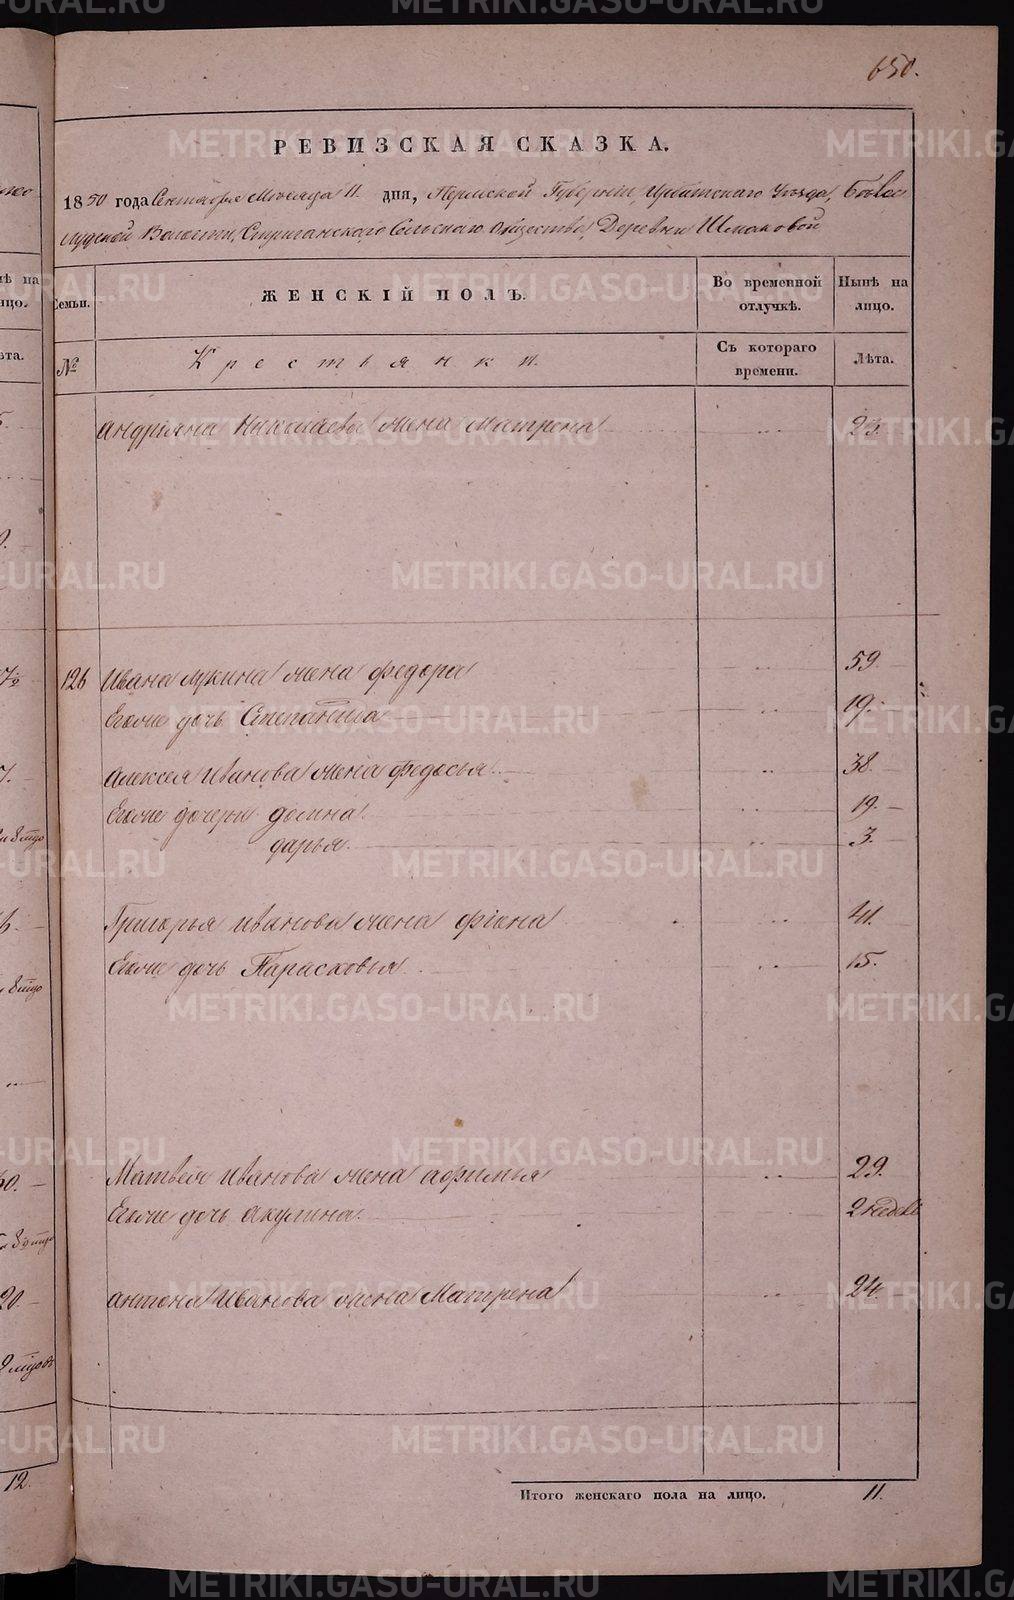 650.
РЕВИЗСКАЯ СКАЗКА.
1850 года Сентября Месяца 11. дня, Пермской Губернии, Ирбитскаго Уезда, Бѣлос
лудской Волости, Стриганскаго Сельскаго Общества, Деревни Шмаковой
Семьи. ЖЕНСКІЙ ПОЛЪ. Во временной отлучкѣ. Нынѣ на лицо.
№ Крестьянки. Съ котораго времени. Лѣта.
Андріяна Николаева жена Матрона 23.
126 Ивана Лукина жена Федора 59
Егоже дочь Степанида 19.
Алексея Иванова жена Федосья 38.
Егоже дочери Домна 19.
Дарья 3.
Григорья Иванова жена Фіона 41.
Егоже дочь Парасковья 15.
Матвея Иванова жена Афимья 29.
Егоже дочь Акулина 2 недель
Антона Иванова жена Матрена 24.
Итого женскаго пола на лицо. 11.
12.
METRIKI.GASO-URAL.RU